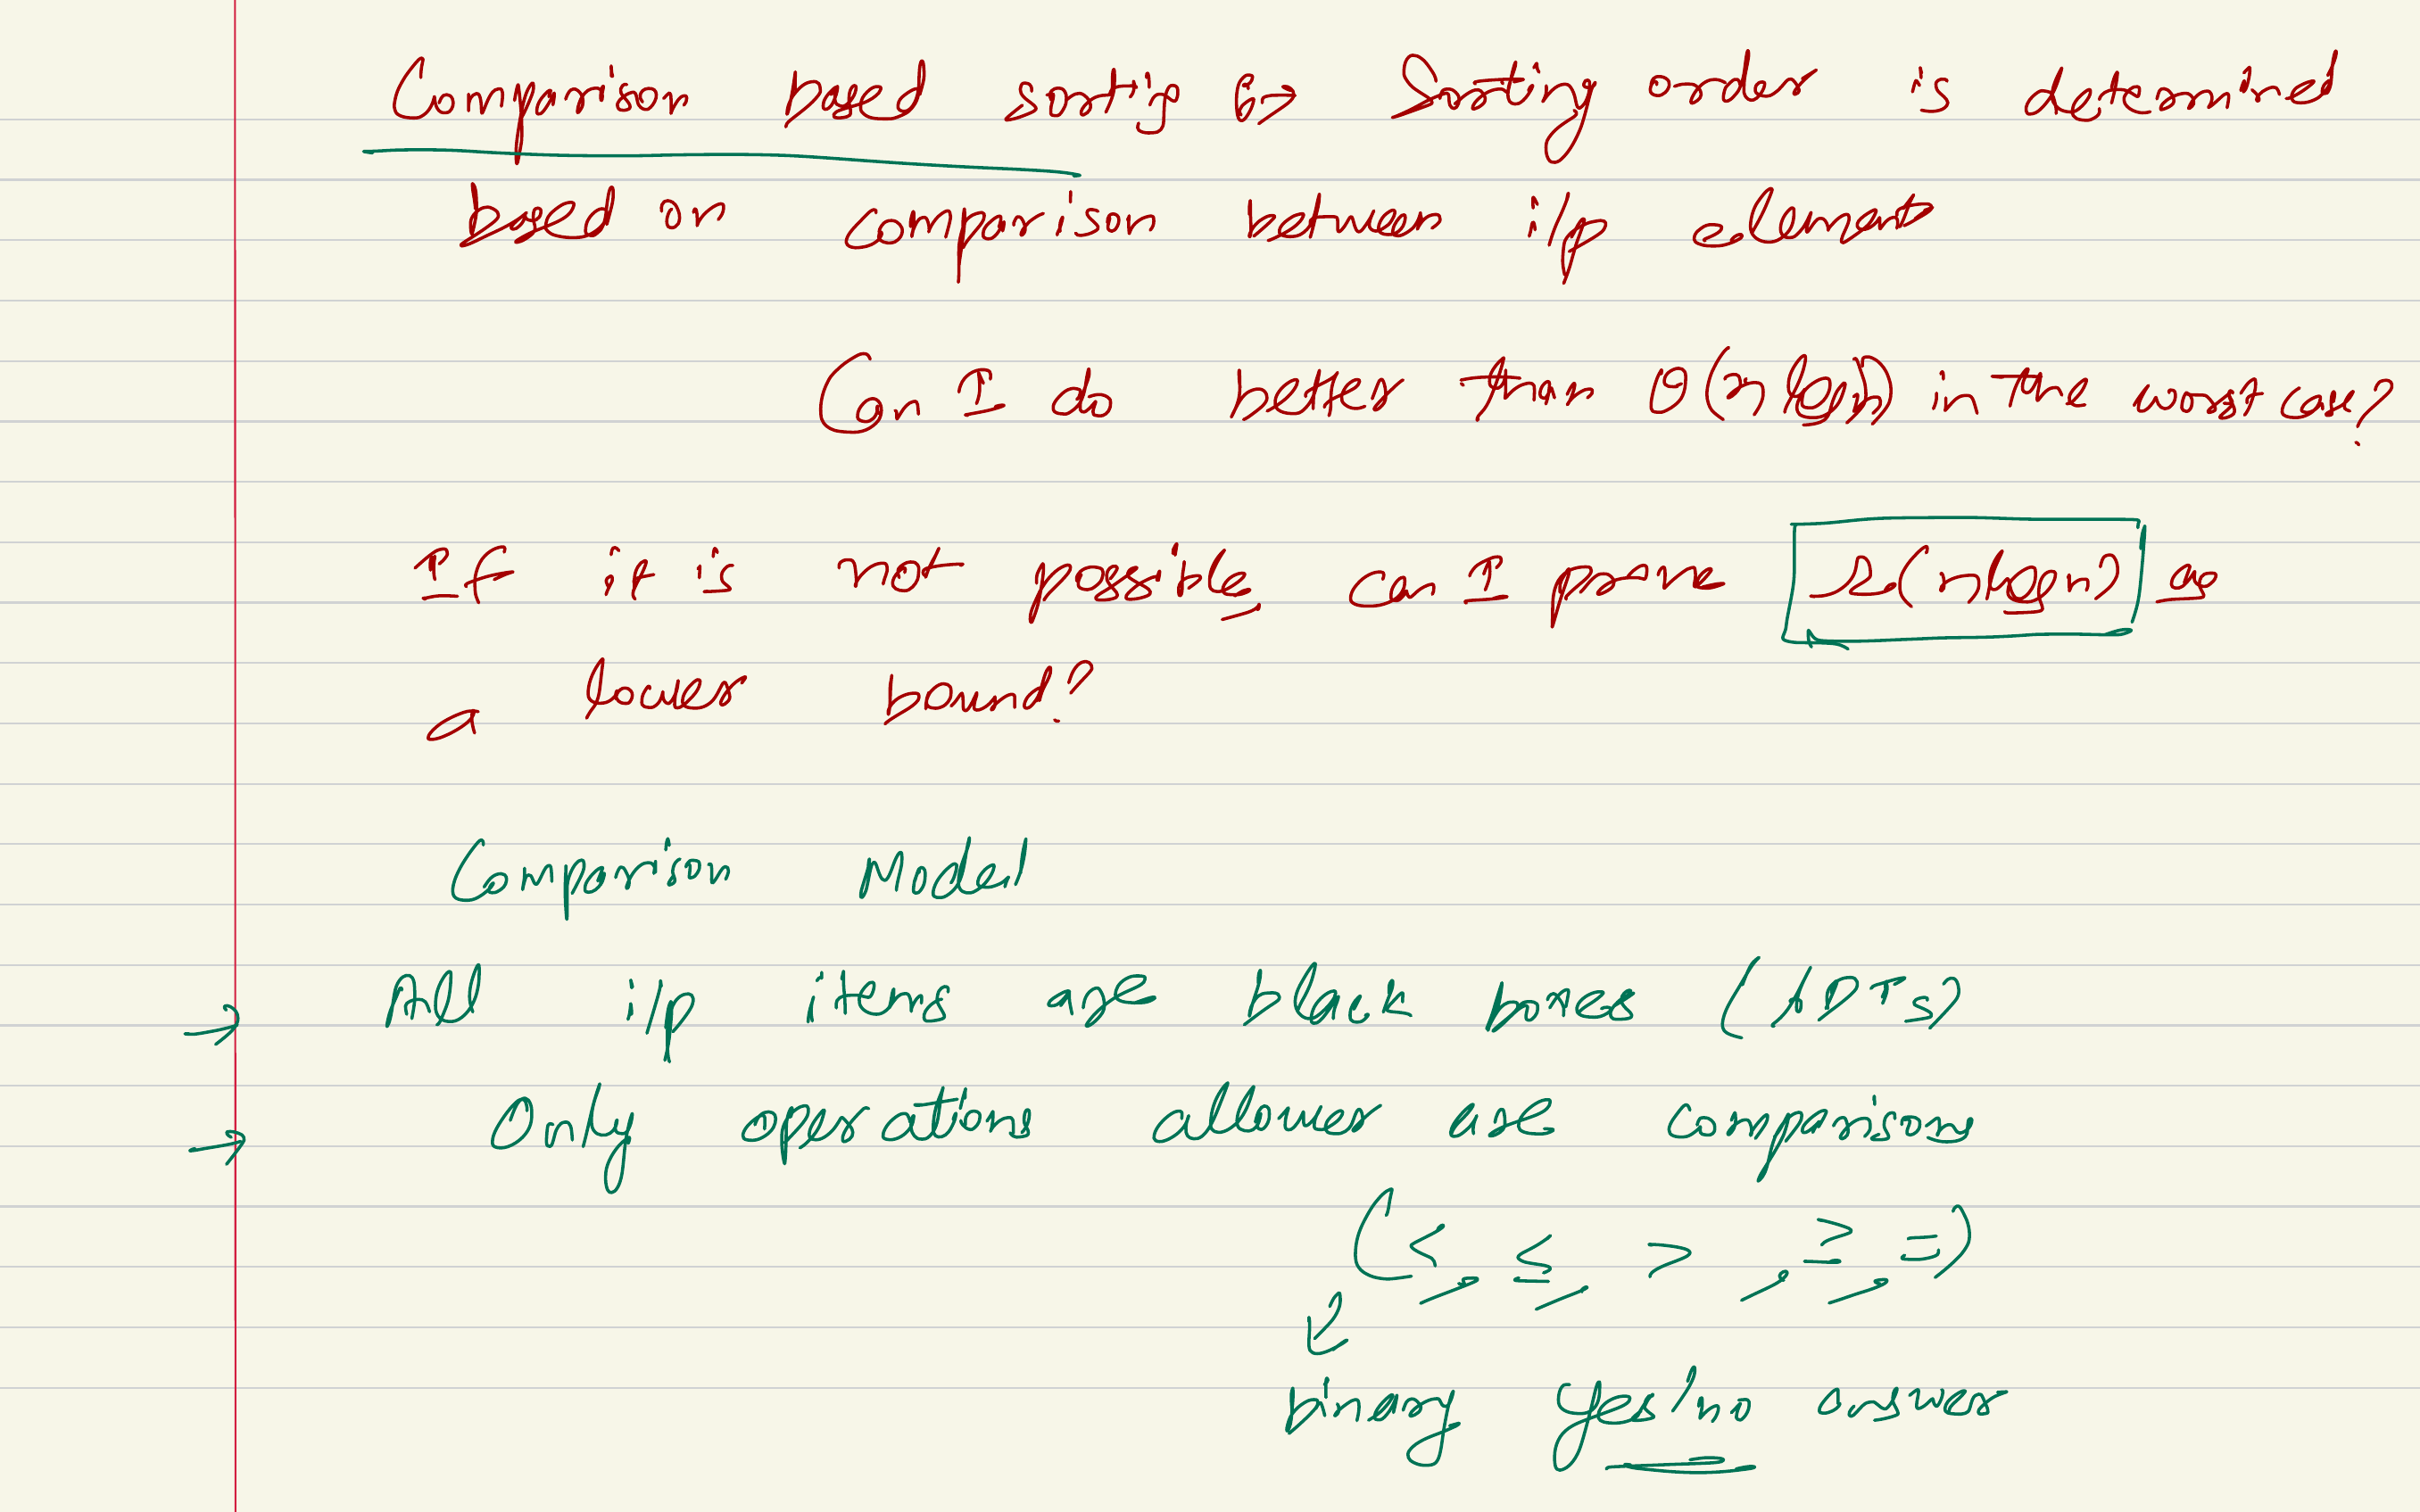 Comparison based sorting => Sorting order is determined
based on comparison between i/p elements
Can I do better than Θ(n log n) in the worst case?
If it is not possible can I prove Ω(n log n) as
a lower bound?
Comparison Model
→ All i/p items are black boxes (ADTs)
→ Only operations allower are comparisons
(<, ≤, >, ≥, =)
↙
binary yes/no answer